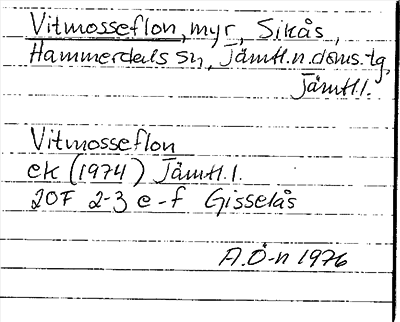 Vitmosseflon, myr, Sikås,
Hammerdals sn, Jämtl.n.doms.tg,
Jämtl.l.
Vitmosseflon
ek (1974) Jämtl.l.
20F 2-3 e-f Gisselås
A.Ö-n 1976